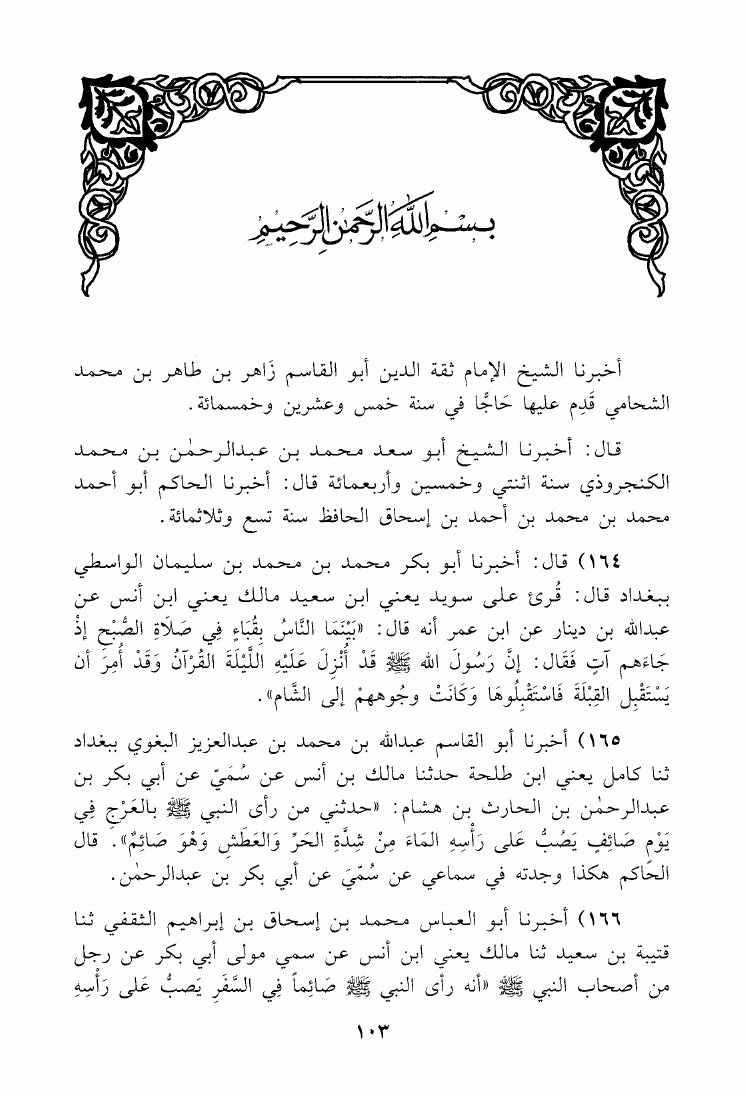 بسم الله الرحمن الرحيم
أخبرنا الشيخ الإمام ثقة الدين أبو القاسم زَاهر بن طاهر بن محمد
الشحامي قَدِم عليها حَاجًّا في سنة خمس وعشرين وخمسمائة.
قال: أخبرنا الشيخ أبو سعد محمد بن عبدالرحمٰن بن محمد
الكنجروذي سنة اثنتي وخمسين وأربعمائة قال: أخبرنا الحاكم أبو أحمد
محمد بن محمد بن أحمد بن إسحاق الحافظ سنة تسع وثلاثمائة.
١٦٤) قال: أخبرنا أبو بكر محمد بن محمد بن سليمان الواسطي
ببغداد قال: قُرئ على سويد يعني ابن سعيد مالك يعني ابن أنس عن
عبدالله بن دينار عن ابن عمر أنه قال: «بَيْنَمَا النَّاسُ بِقُبَاءٍ فِي صَلَاةِ الصُّبْحِ إذْ
جَاءَهم آتٍ فَقَال: إنَّ رَسُولَ الله ﷺ قَدْ أُنْزِلَ عَلَيْهِ اللَّيْلَةَ القُرْآنُ وَقَدْ أُمِرَ أن
يَسْتَقْبِل القِبْلَةَ فَاسْتَقْبِلُوهَا وَكَانَتْ وجُوههمْ إلى الشَّام».
١٦٥) أخبرنا أبو القاسم عبدالله بن محمد بن عبدالعزيز البغوي ببغداد
ثنا كامل يعني ابن طلحة حدثنا مالك بن أنس عن سُمَيّ عن أبي بكر بن
عبدالرحمٰن بن الحارث بن هشام: «حدثني من رأى النبي ﷺ بالعَرْجِ فِي
يَوْمٍ صَائِفٍ يَصُبُّ عَلى رَأْسِهِ المَاءَ مِنْ شِدَّةِ الحَرِّ وَالعَطَشِ وَهْوَ صَائِمٌ». قال
الحاكم هكذا وجدته في سماعي عن سُمّيَ عن أبي بكر بن عبدالرحمٰن.
١٦٦) أخبرنا أبو العباس محمد بن إسحاق بن إبراهيم الثقفي ثنا
قتيبة بن سعيد ثنا مالك يعني ابن أنس عن سمي مولى أبي بكر عن رجل
من أصحاب النبي ﷺ «أنه رأى النبي ﷺ صَائِماً فِي السَّفَرِ يَصبُّ عَلى رَأْسِهِ
١٠٣